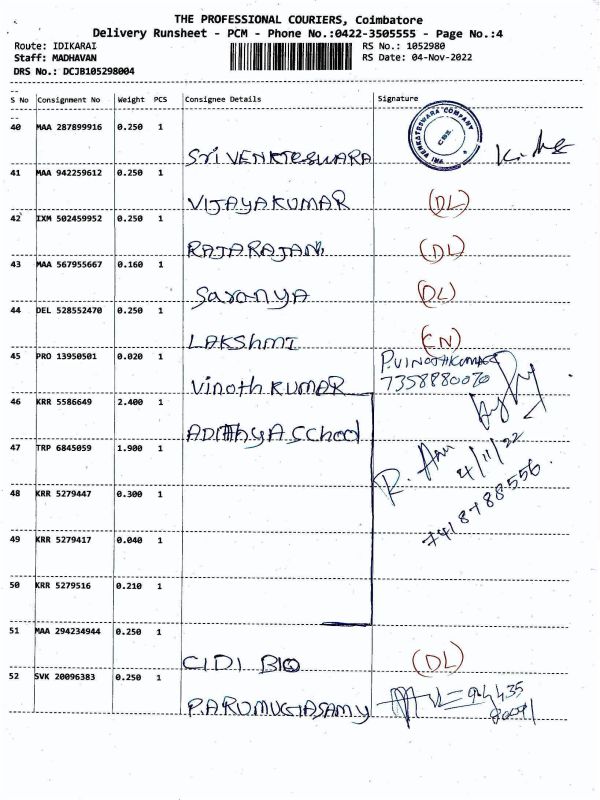 THE PROFESSIONAL COURIERS, Coimbatore
Delivery Runsheet - PCM - Phone No.:0422-3505555 - Page No.:4
Route: IDIKARAI
RS No.: 1052980
Staff: MADHAVAN
RS Date: 04-Nov-2022
DRS No.: DCJB105298004
S No Consignment No Weight PCS Consignee Details Signature
40 MAA 287899916 0.250 1
SRI VENKTESWARA
41 MAA 942259612 0.250 1
VIJAYAKUMAR (DL)
42 IXM 502459952 0.250 1
RAJARAJAN (DL)
43 MAA 567955667 0.160 1
Saranya (DL)
44 DEL 528552470 0.250 1
LAKShmI (CN)
45 PRO 13950501 0.020 1
P.VINOTHKUMAR
7358880070
Vinoth KUMAR
46 KRR 5586649 2.400 1
ADIthyA School
47 TRP 6845059 1.900 1
4/11/22
48 KRR 5279447 0.300 1
7418788556
49 KRR 5279417 0.040 1
50 KRR 5279516 0.210 1
51 MAA 294234944 0.250 1
CIDI BIO (DL)
52 SVK 20096383 0.250 1
P.ARUMUGASAMY